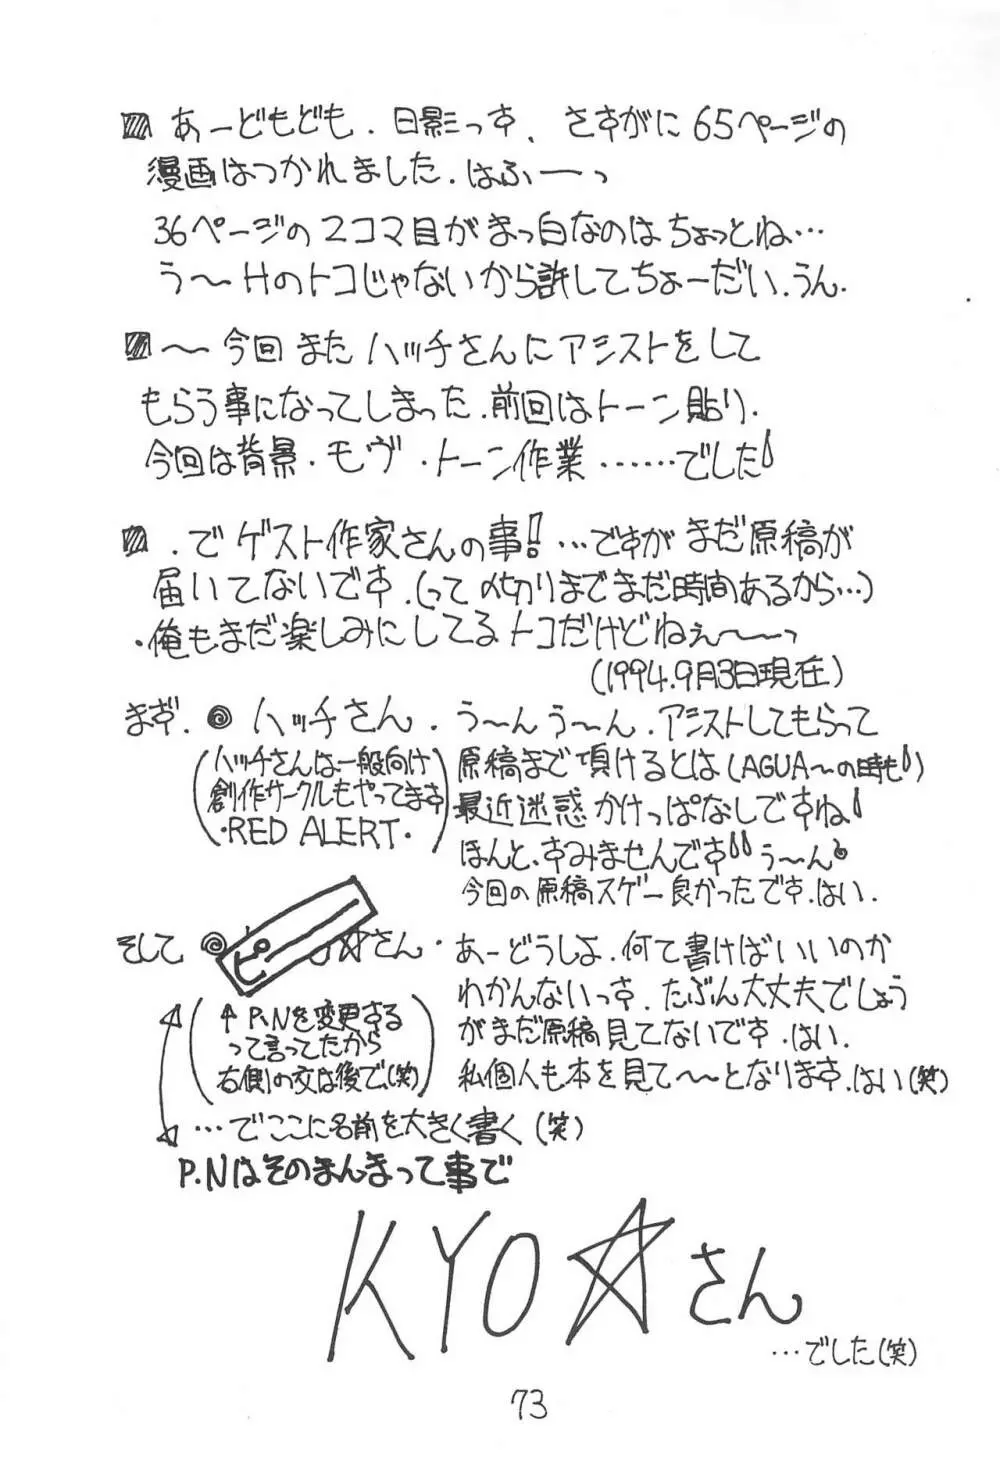 ▨ あーどもども．日影っす、さすがに65ページの
漫画はつかれました．はふーーっ
36ページの2コマ目がまっ白なのはちょっとね…
う〜HのトコじゃないからE許してちょーだい．うん．
▨〜今回またハッチさんにアシストをして
もらう事になってしまった．前回はトーン貼り．
今回は背景・モヴ・トーン作業……でした!
▨．でゲスト作家さんの事!…ですがまだ原稿が
届いてないです．(って〆切りまでまだ時間あるから…)
・俺もまだ楽しみにしてるトコだけどねぇ〜〜っ
(1994.9月3日現在)
まず．◎ハッチさん．う〜んう〜ん．アシストしてもらって
原稿まで頂けるとは(AGUA〜の時も!)
最近迷惑かけっぱなしですね!
ほんと、すみませんです!!う〜ん
今回の原稿スゲー良かったです．はい．
(ハッチさんは一般向け
創作サークルもやってます
・RED ALERT・)
そして◎ピー☆さん・あーどうしよ．何て書けばいいのか
わかんないっす．たぶん大丈夫でしょう
がまだ原稿見てないです．はい．
私個人も本を見て〜〜となります．はい(笑)
(↑P.Nを変更する
って言ってたから
右側の文は後で(笑))
…でここに名前を大きく書く(笑)
P.Nはそのまんまって事で
KYO☆さん
…でした(笑)
73